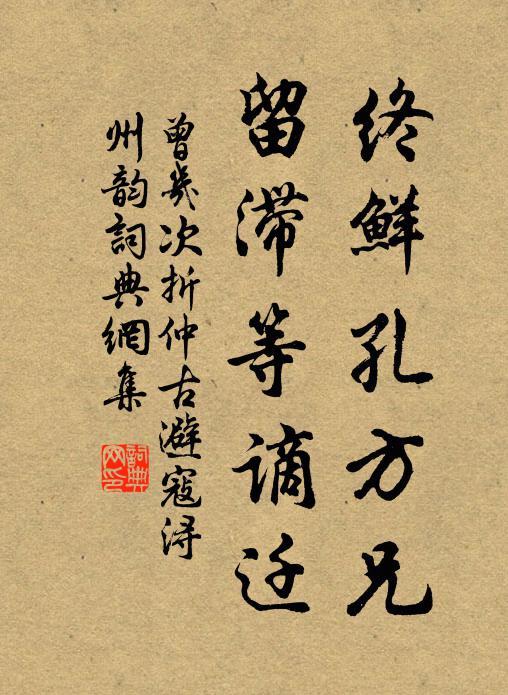 终鲜孔方兄
留滞等谪迁
曾几次折仲古避寇浔
州韵词典網集
词典
网印